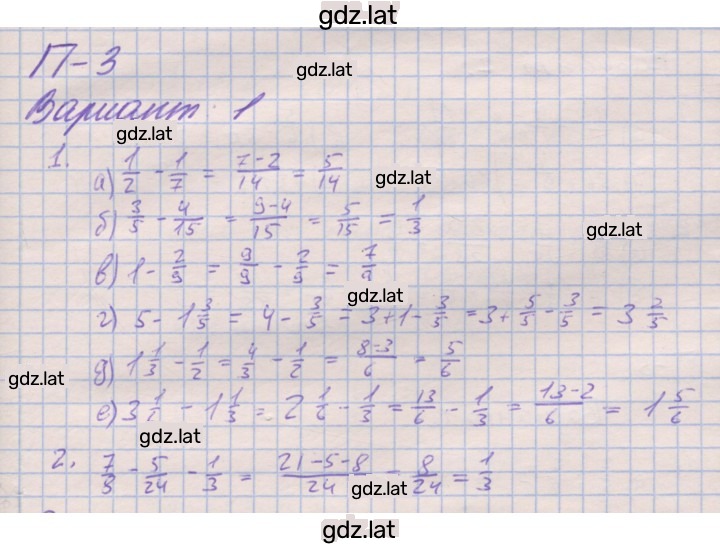 gdz.lat
П-3
gdz.lat
Вариант 1
gdz.lat
1.
а) 1/2 - 1/7 = 7-2/14 = 5/14
gdz.lat
б) 3/5 - 4/15 = 9-4/15 = 5/15 = 1/3
gdz.lat
в) 1 - 2/9 = 9/9 - 2/9 = 7/9
gdz.lat
г) 5 - 1 3/5 = 4 - 3/5 = 3+1- 3/5 = 3+ 5/5 - 3/5 = 3 2/5
д) 1 1/3 - 1/2 = 4/3 - 1/2 = 8-3/6 = 5/6
gdz.lat
е) 3 1/6 - 1 1/3 = 2 1/6 - 1/3 = 13/6 - 1/3 = 13-2/6 = 1 5/6
gdz.lat
2. 7/8 - 5/24 - 1/3 = 21-5-8/24 = 8/24 = 1/3
gdz.lat
gdz.lat